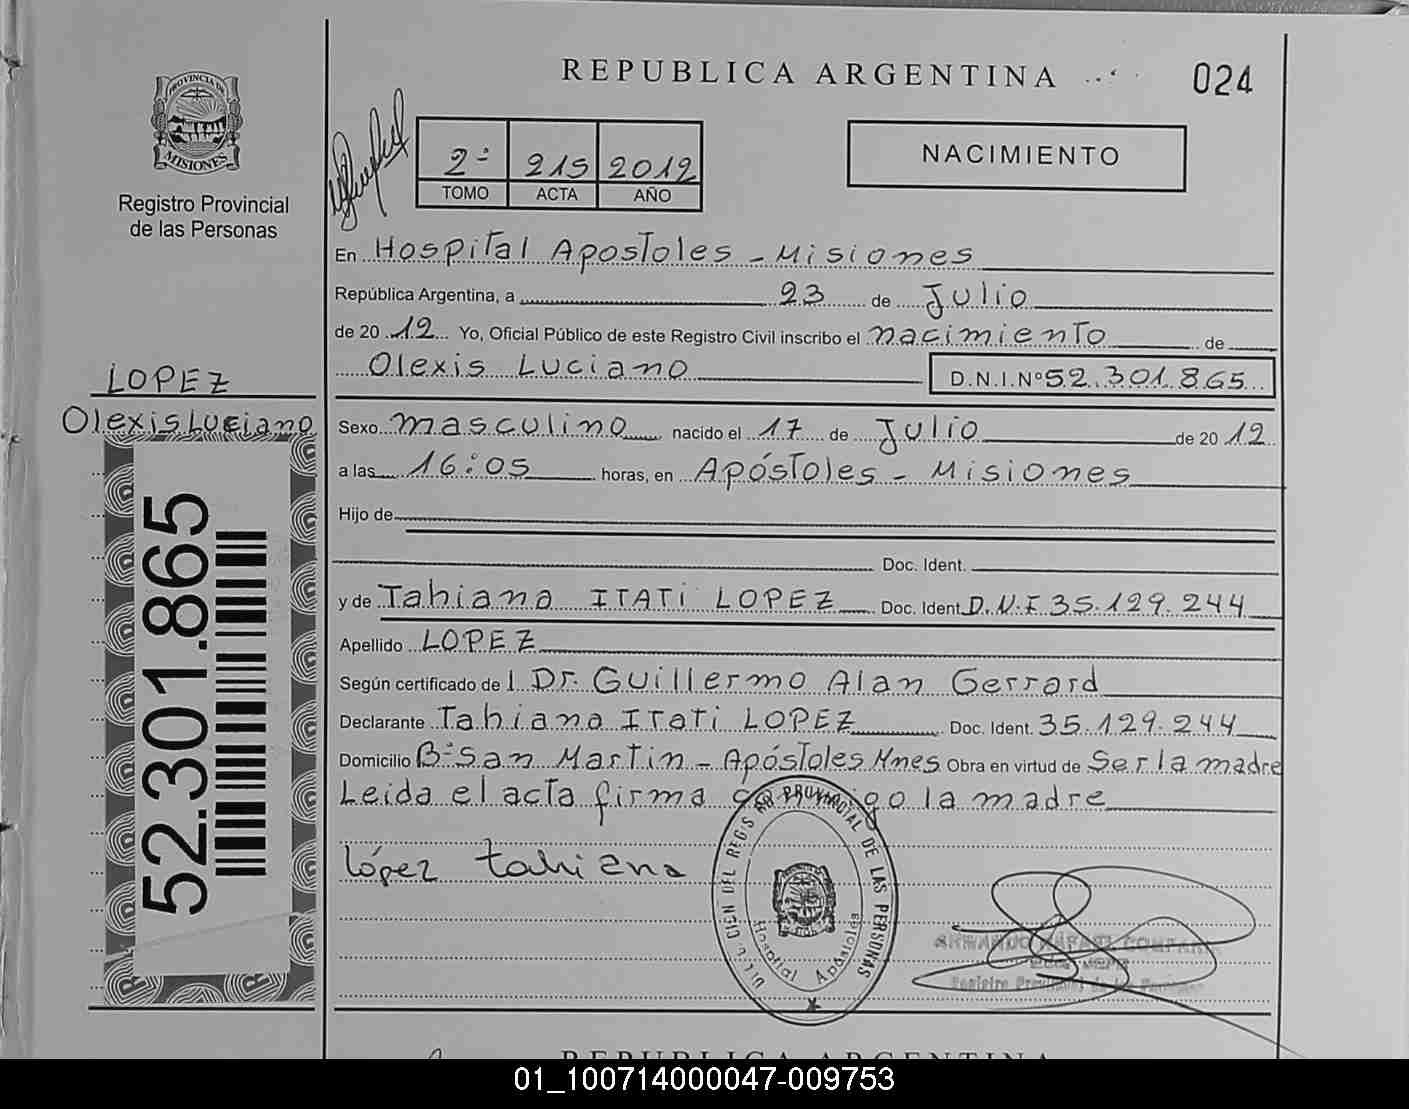 REPUBLICA ARGENTINA
024
PROVINCIA DE
MISIONES
Registro Provincial
de las Personas
2º 215 2012
TOMO ACTA AÑO
NACIMIENTO
En Hospital Apostoles - Misiones
República Argentina, a 23 de Julio
de 2012 Yo, Oficial Público de este Registro Civil inscribo el nacimiento de
Olexis Luciano D.N.I.Nº 52.301.865
LOPEZ
Olexis Luciano
52.301.865
Sexo masculino nacido el 17 de Julio de 2012
a las 16:05 horas, en Apóstoles - Misiones
Hijo de
Doc. Ident.
y de Tahiana ITATI LOPEZ Doc. Ident. D.N.I 35.129.244
Apellido LOPEZ
Según certificado de l Dr. Guillermo Alan Gerrard
Declarante Tahiana ITATI LOPEZ Doc. Ident. 35.129.244
Domicilio Bº San Martin - Apóstoles Mnes Obra en virtud de Ser la madre
Leida el acta firma conmigo la madre
López tahiana
REGIS RO PROVINCIAL DE LAS PERSONAS
Hospital Apóstoles
ARMANDO RAFAEL
JEFE
Registro Provincial de las Personas
REPUBLICA ARGENTINA
01_100714000047-009753